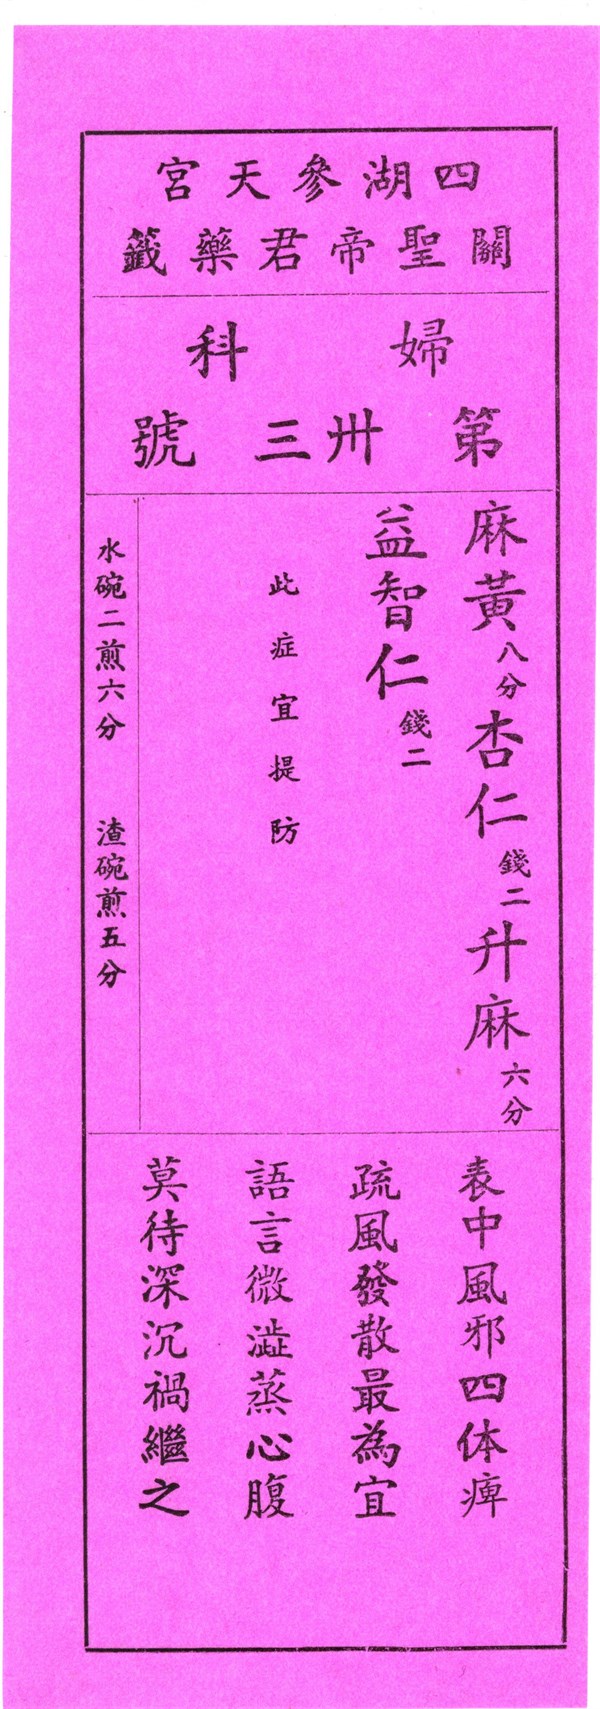 四湖參天宮
關聖帝君藥籤
婦科
第卅三號
麻黃八分杏仁錢二升麻六分
益智仁錢二
此症宜提防
水碗二煎六分 渣碗煎五分
表中風邪四体痺
疏風發散最為宜
語言微澁蒸心腹
莫待深沉禍繼之